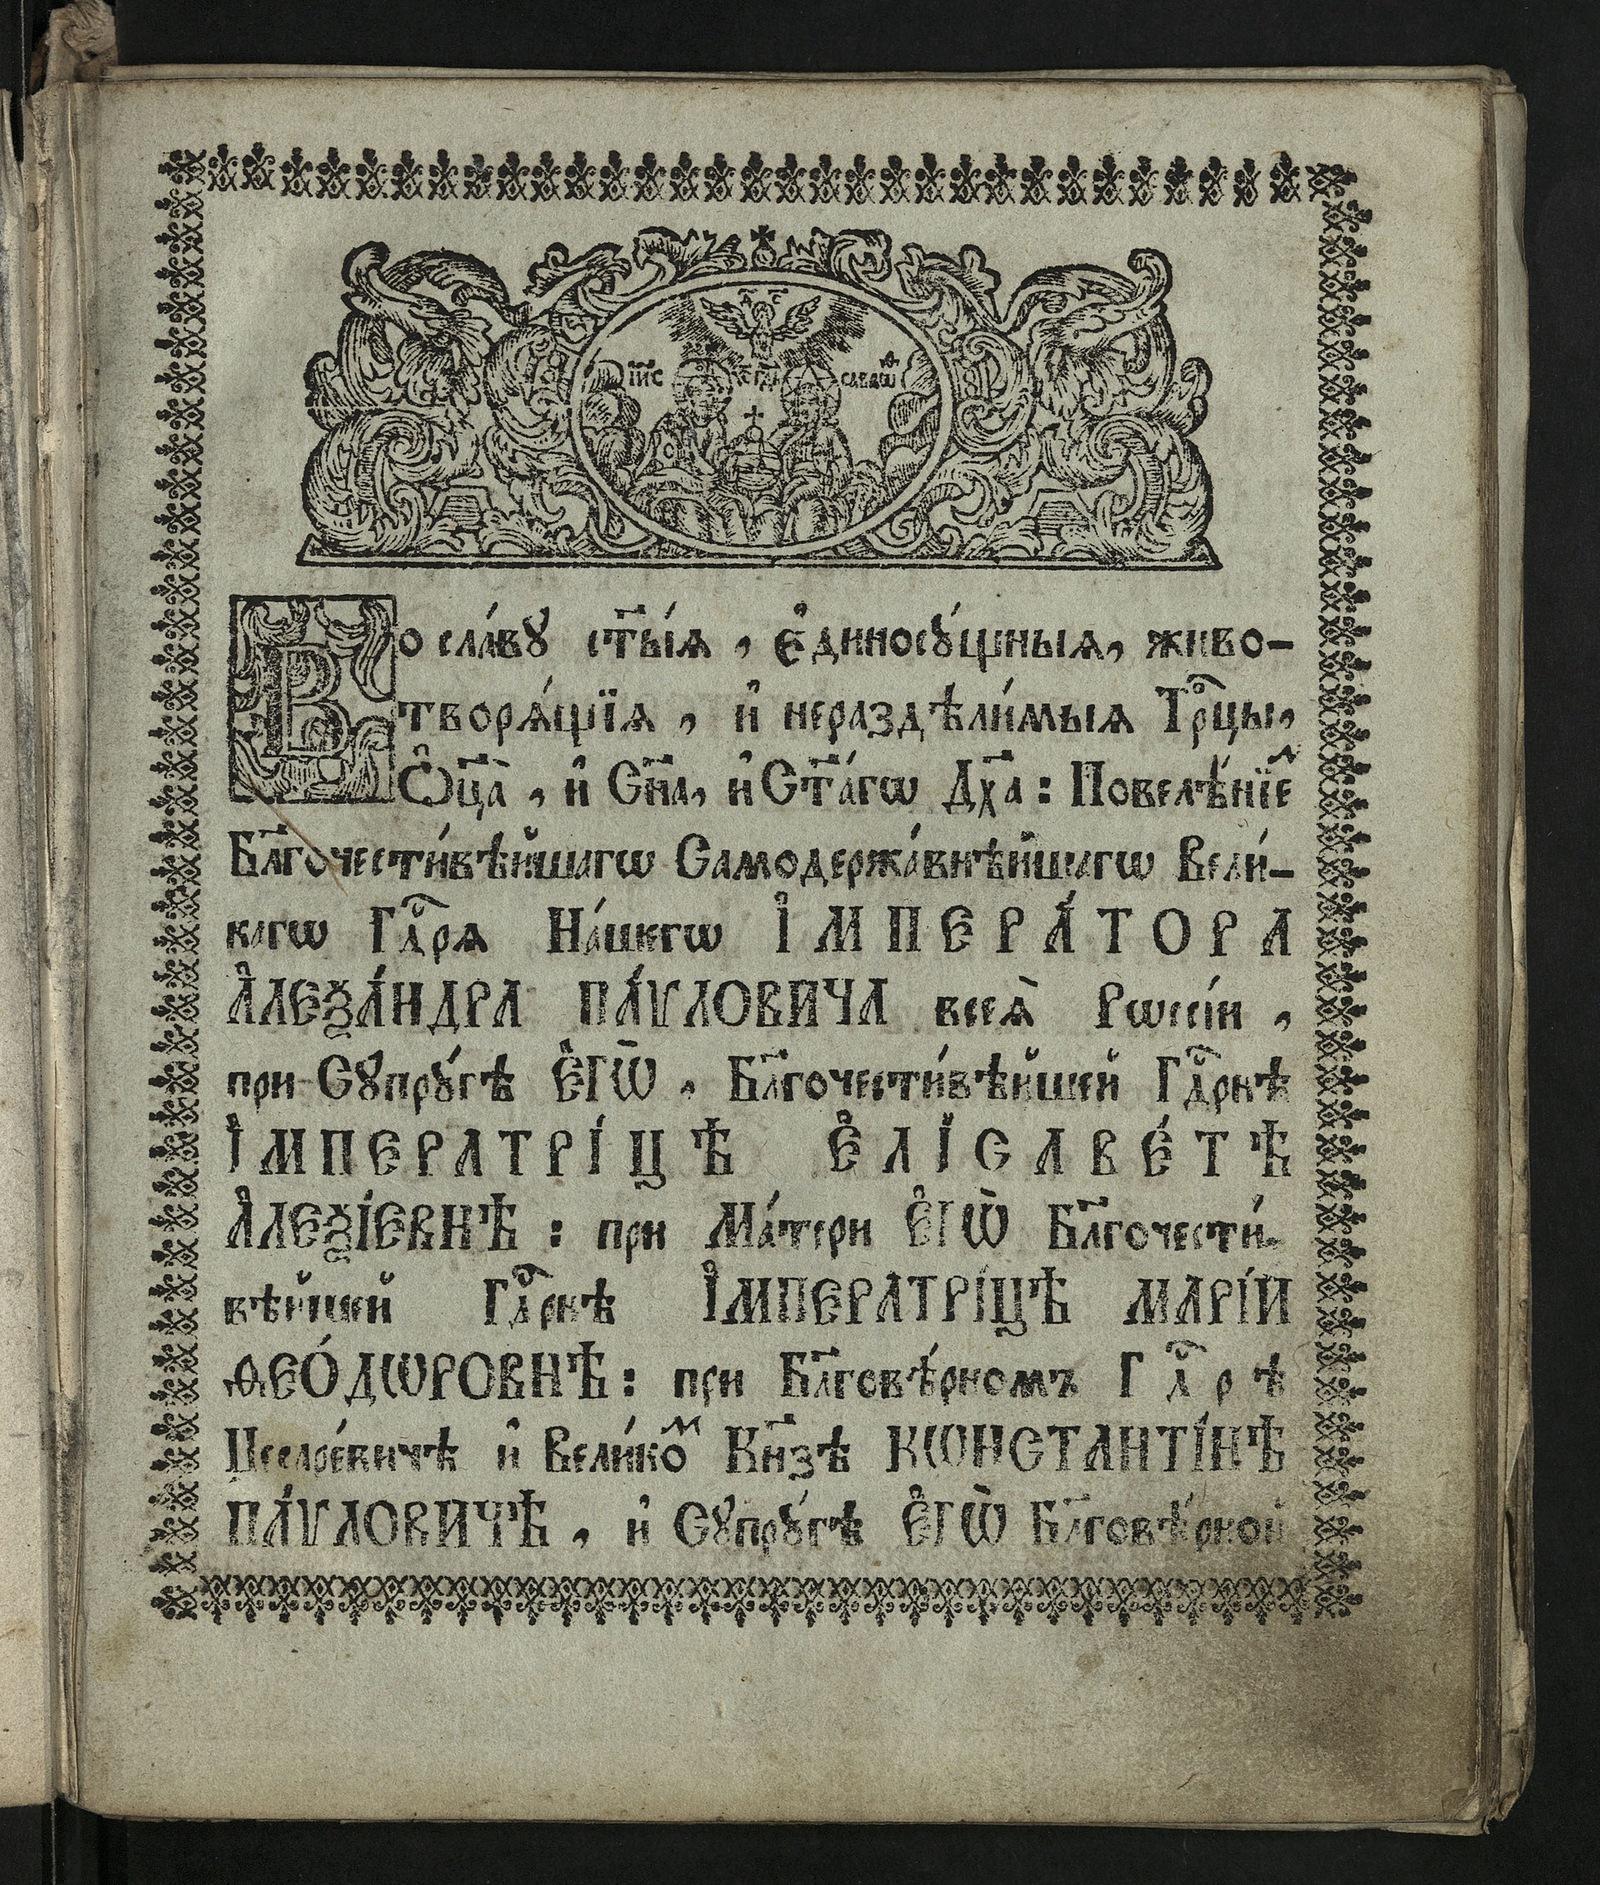 д҃ с҃
іи҃с
саваѡѳ
Во сла́вꙋ ст҃ы́ѧ, є҆диносꙋ́щныѧ, живо-
творѧ́щїѧ, и҆ нераздѣли́мыѧ Трⷪ҇цы,
Ѻ҆ц҃а̀, и҆ Сн҃а, и҆ Ст҃а́гѡ Дх҃а: Повелѣ́нїеⷨ
Бл҃гочести́вѣйшагѡ Самодержа́внѣйшагѡ Вели́-
кагѡ Гдⷭ҇рѧ На́шегѡ І҆МПЕРА́ТОРА
А҆ЛЕѮА́НДРА ПА́ѴЛОВИЧА всеѧ̀ Рѡссі́и,
при Сꙋпрꙋ́гѣ Е҆ГѠ̀, Бл҃гочести́вѣйшей Гдⷭ҇рнѣ
І҆МПЕРАТРІ́ЦѢ Е҆ЛІСАВЕ́ТѢ
А҆ЛЕѮІ́ЕВНѢ: при Ма́тери Е҆ГѠ̀ Бл҃гочести́-
вѣйшей Гдⷭ҇рнѣ І҆МПЕРАТРІ́ЦѢ МАРІ́И
ѲЕО́ДѠРОВНѢ: при Бл҃говѣ́рномъ Гдⷭ҇рѣ
Цесаре́вичѣ и҆ Вели́коⷨ Кн҃зѣ КѠНСТАНТІ́НѢ
ПА́ѴЛОВИЧѢ, и҆ Сꙋпрꙋ́гѣ Е҆ГѠ̀ Бл҃говѣ́рной